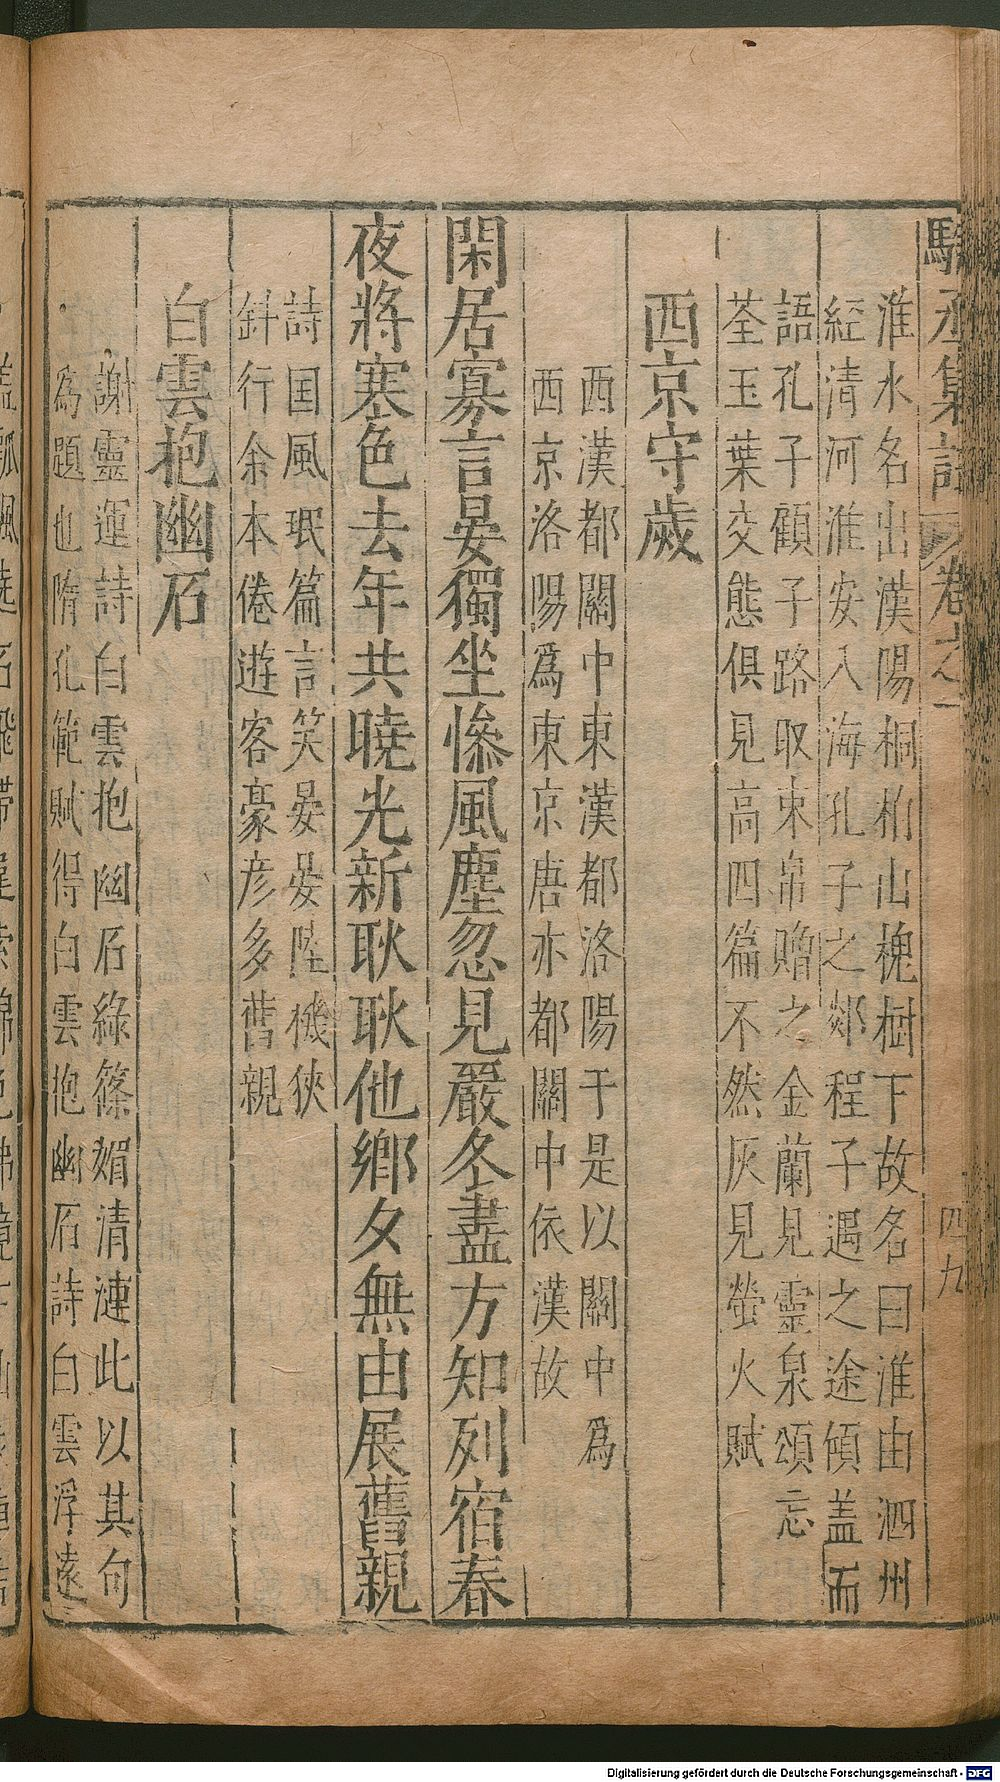 駱丞集註 卷之一 四九
淮水名出漢陽桐柏山槐樹下故名曰淮由泗州
經清河淮安入海孔子之郯程子遇之途傾盖而
語孔子顧子路取束帛贈之金蘭見靈泉頌忘
荃玉葉交態俱見高四篇不然灰見螢火賦
西京守歲
西漢都關中東漢都洛陽于是以關中為
西京洛陽爲東京唐亦都關中依漢故
閑居寡言晏獨坐慘風塵忽見嚴冬盡方知列宿春
夜將寒色去年共曉光新耿耿他鄉夕無由展舊親
詩国風珉篇言笑晏晏陸機狹
斜行余本倦遊客豪彦多舊親
白雲抱幽石
謝靈運詩白雲抱幽石綠篠媚清漣此以其句
為題也隋孔範賦得白雲抱幽石詩白雲浮遠
Digitalisierung gefördert durch die Deutsche Forschungsgemeinschaft - DFG